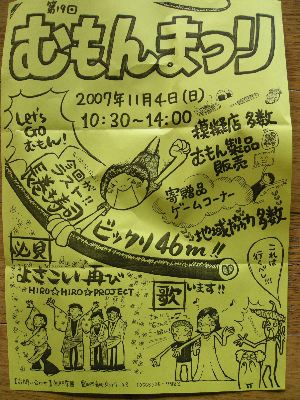 第19回
むもんまつり
2007年11月4日(日)
10:30~14:00
Let's
Go
むもん!
模擬店 多数
むもん製品
販売
寄贈品
ゲームコーナー
地域協力 多数
今回が
ラスト!!
長巻き寿司
ビックリ46m!!
必見
よさこい再び
HIRO☆HIRO☆PROJECT
歌います!!
これは